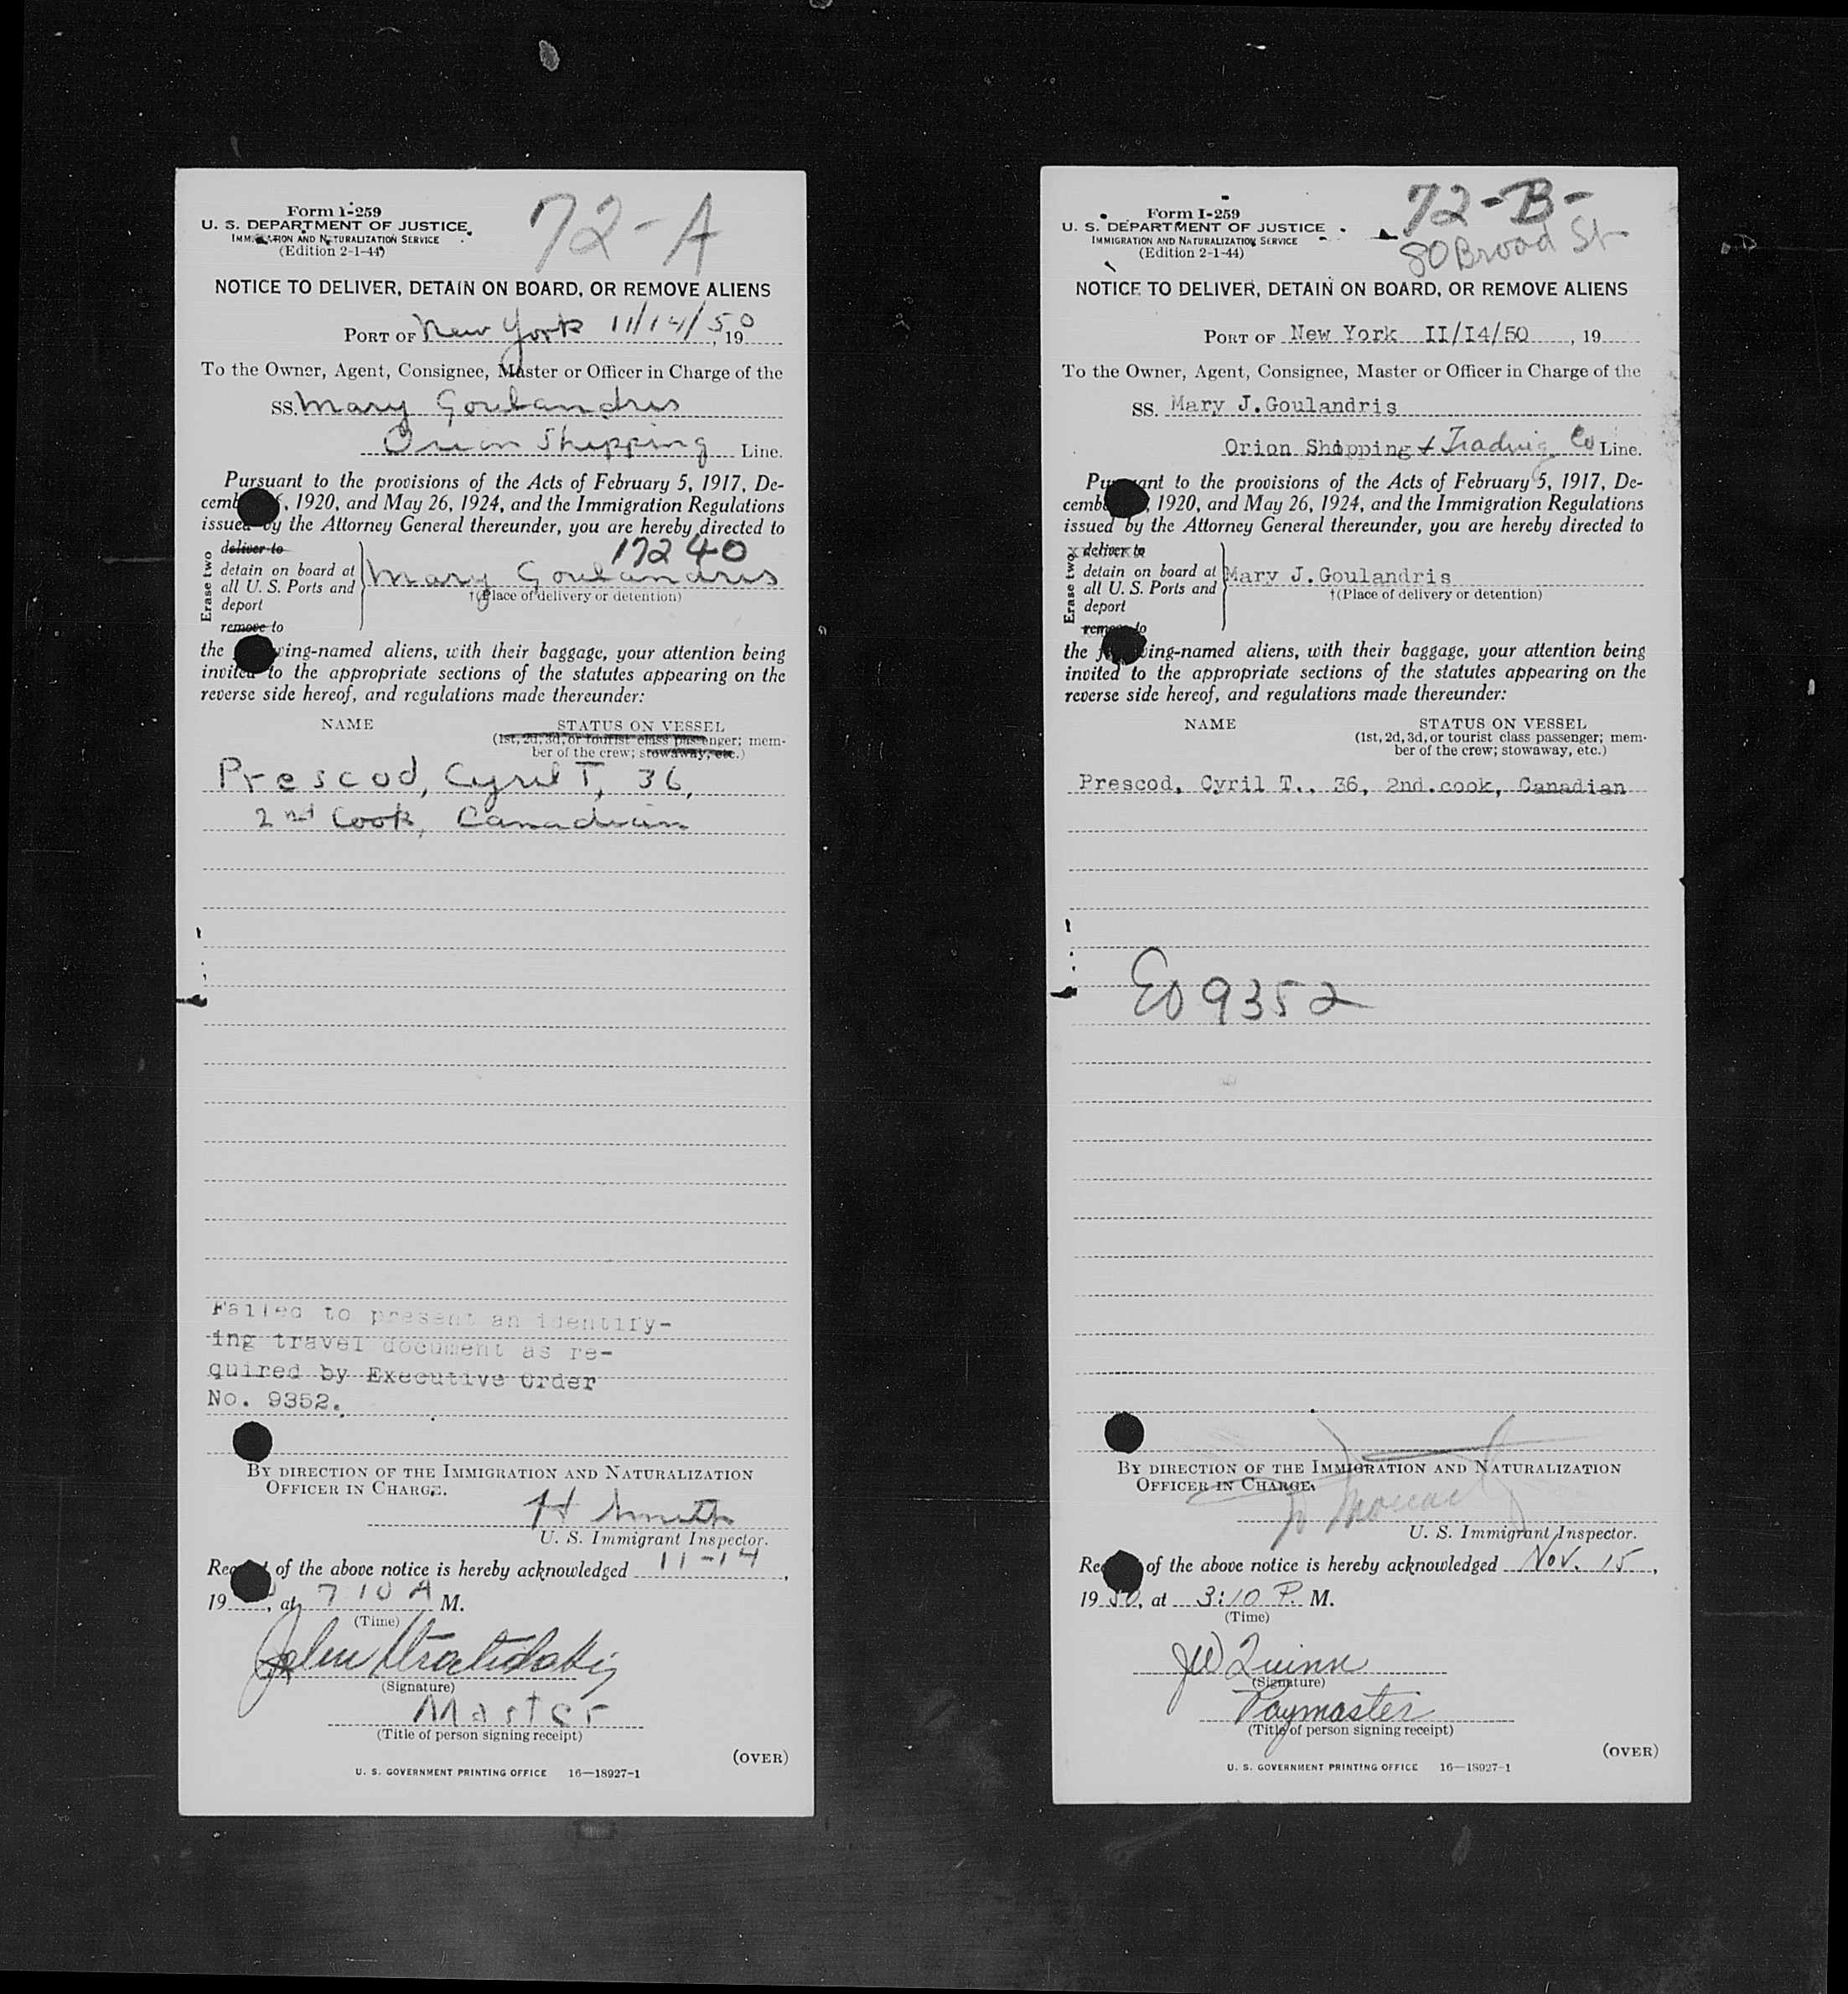 72-A
Form I-259
U. S. DEPARTMENT OF JUSTICE
IMMIGRATION AND NATURALIZATION SERVICE
(Edition 2-1-44)
NOTICE TO DELIVER, DETAIN ON BOARD, OR REMOVE ALIENS
PORT OF New York 11/14/50, 19
To the Owner, Agent, Consignee, Master or Officer in Charge of the
SS. Mary Goulandris
Orion Shipping Line.
Pursuant to the provisions of the Acts of February 5, 1917, De-
cemb 6, 1920, and May 26, 1924, and the Immigration Regulations
issued by the Attorney General thereunder, you are hereby directed to
Erase two
deliver to
17240
detain on board at
all U. S. Ports and
deport
remove to
Mary Goulandris
†(Place of delivery or detention)
the wing-named aliens, with their baggage, your attention being
invited to the appropriate sections of the statutes appearing on the
reverse side hereof, and regulations made thereunder:
NAME STATUS ON VESSEL
(1st, 2d, 3d, or tourist class passenger; mem-
ber of the crew; stowaway, etc.)
Prescod, Cyril T, 36,
2nd Cook, Canadian
Failed to present an identify-
ing travel document as re-
quired by Executive Order
No. 9352.
BY DIRECTION OF THE IMMIGRATION AND NATURALIZATION
OFFICER IN CHARGE.
H Smith
U. S. Immigrant Inspector.
Rec of the above notice is hereby acknowledged 11-14,
19, at 7 10 A M.
(Time)
John
(Signature)
Master
(Title of person signing receipt)
(OVER)
U. S. GOVERNMENT PRINTING OFFICE 16—18927-1
72-B-
80 Broad St
Form I-259
U. S. DEPARTMENT OF JUSTICE
IMMIGRATION AND NATURALIZATION SERVICE
(Edition 2-1-44)
NOTICE TO DELIVER, DETAIN ON BOARD, OR REMOVE ALIENS
PORT OF New York II/I4/50, 19
To the Owner, Agent, Consignee, Master or Officer in Charge of the
SS. Mary J.Goulandris
Orion Shipping & Trading Co Line.
Pu ant to the provisions of the Acts of February 5, 1917, De-
cemb , 1920, and May 26, 1924, and the Immigration Regulations
issued by the Attorney General thereunder, you are hereby directed to
Erase two
deliver to
detain on board at
all U. S. Ports and
deport
remove to
Mary J.Goulandris
†(Place of delivery or detention)
the f wing-named aliens, with their baggage, your attention being
invited to the appropriate sections of the statutes appearing on the
reverse side hereof, and regulations made thereunder:
NAME STATUS ON VESSEL
(1st, 2d, 3d, or tourist class passenger; mem-
ber of the crew; stowaway, etc.)
Prescod, Cyril T., 36, 2nd.cook, Canadian
EO 9352
BY DIRECTION OF THE IMMIGRATION AND NATURALIZATION
OFFICER IN CHARGE.
U. S. Immigrant Inspector.
Rec of the above notice is hereby acknowledged Nov. 15,
1950, at 3:10 P. M.
(Time)
JW Quinn
(Signature)
Paymaster
(Title of person signing receipt)
(OVER)
U. S. GOVERNMENT PRINTING OFFICE 16—18927-1